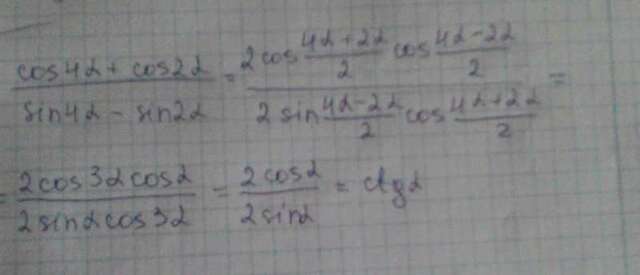 (cos4α + cos2α)/(sin4α − sin2α) = (2cos (4α+2α)/2 cos (4α−2α)/2)/(2 sin (4α−2α)/2 cos (4α+2α)/2) =
= (2cos3α cosα)/(2sinα cos3α) = (2cosα)/(2sinα) = ctgα